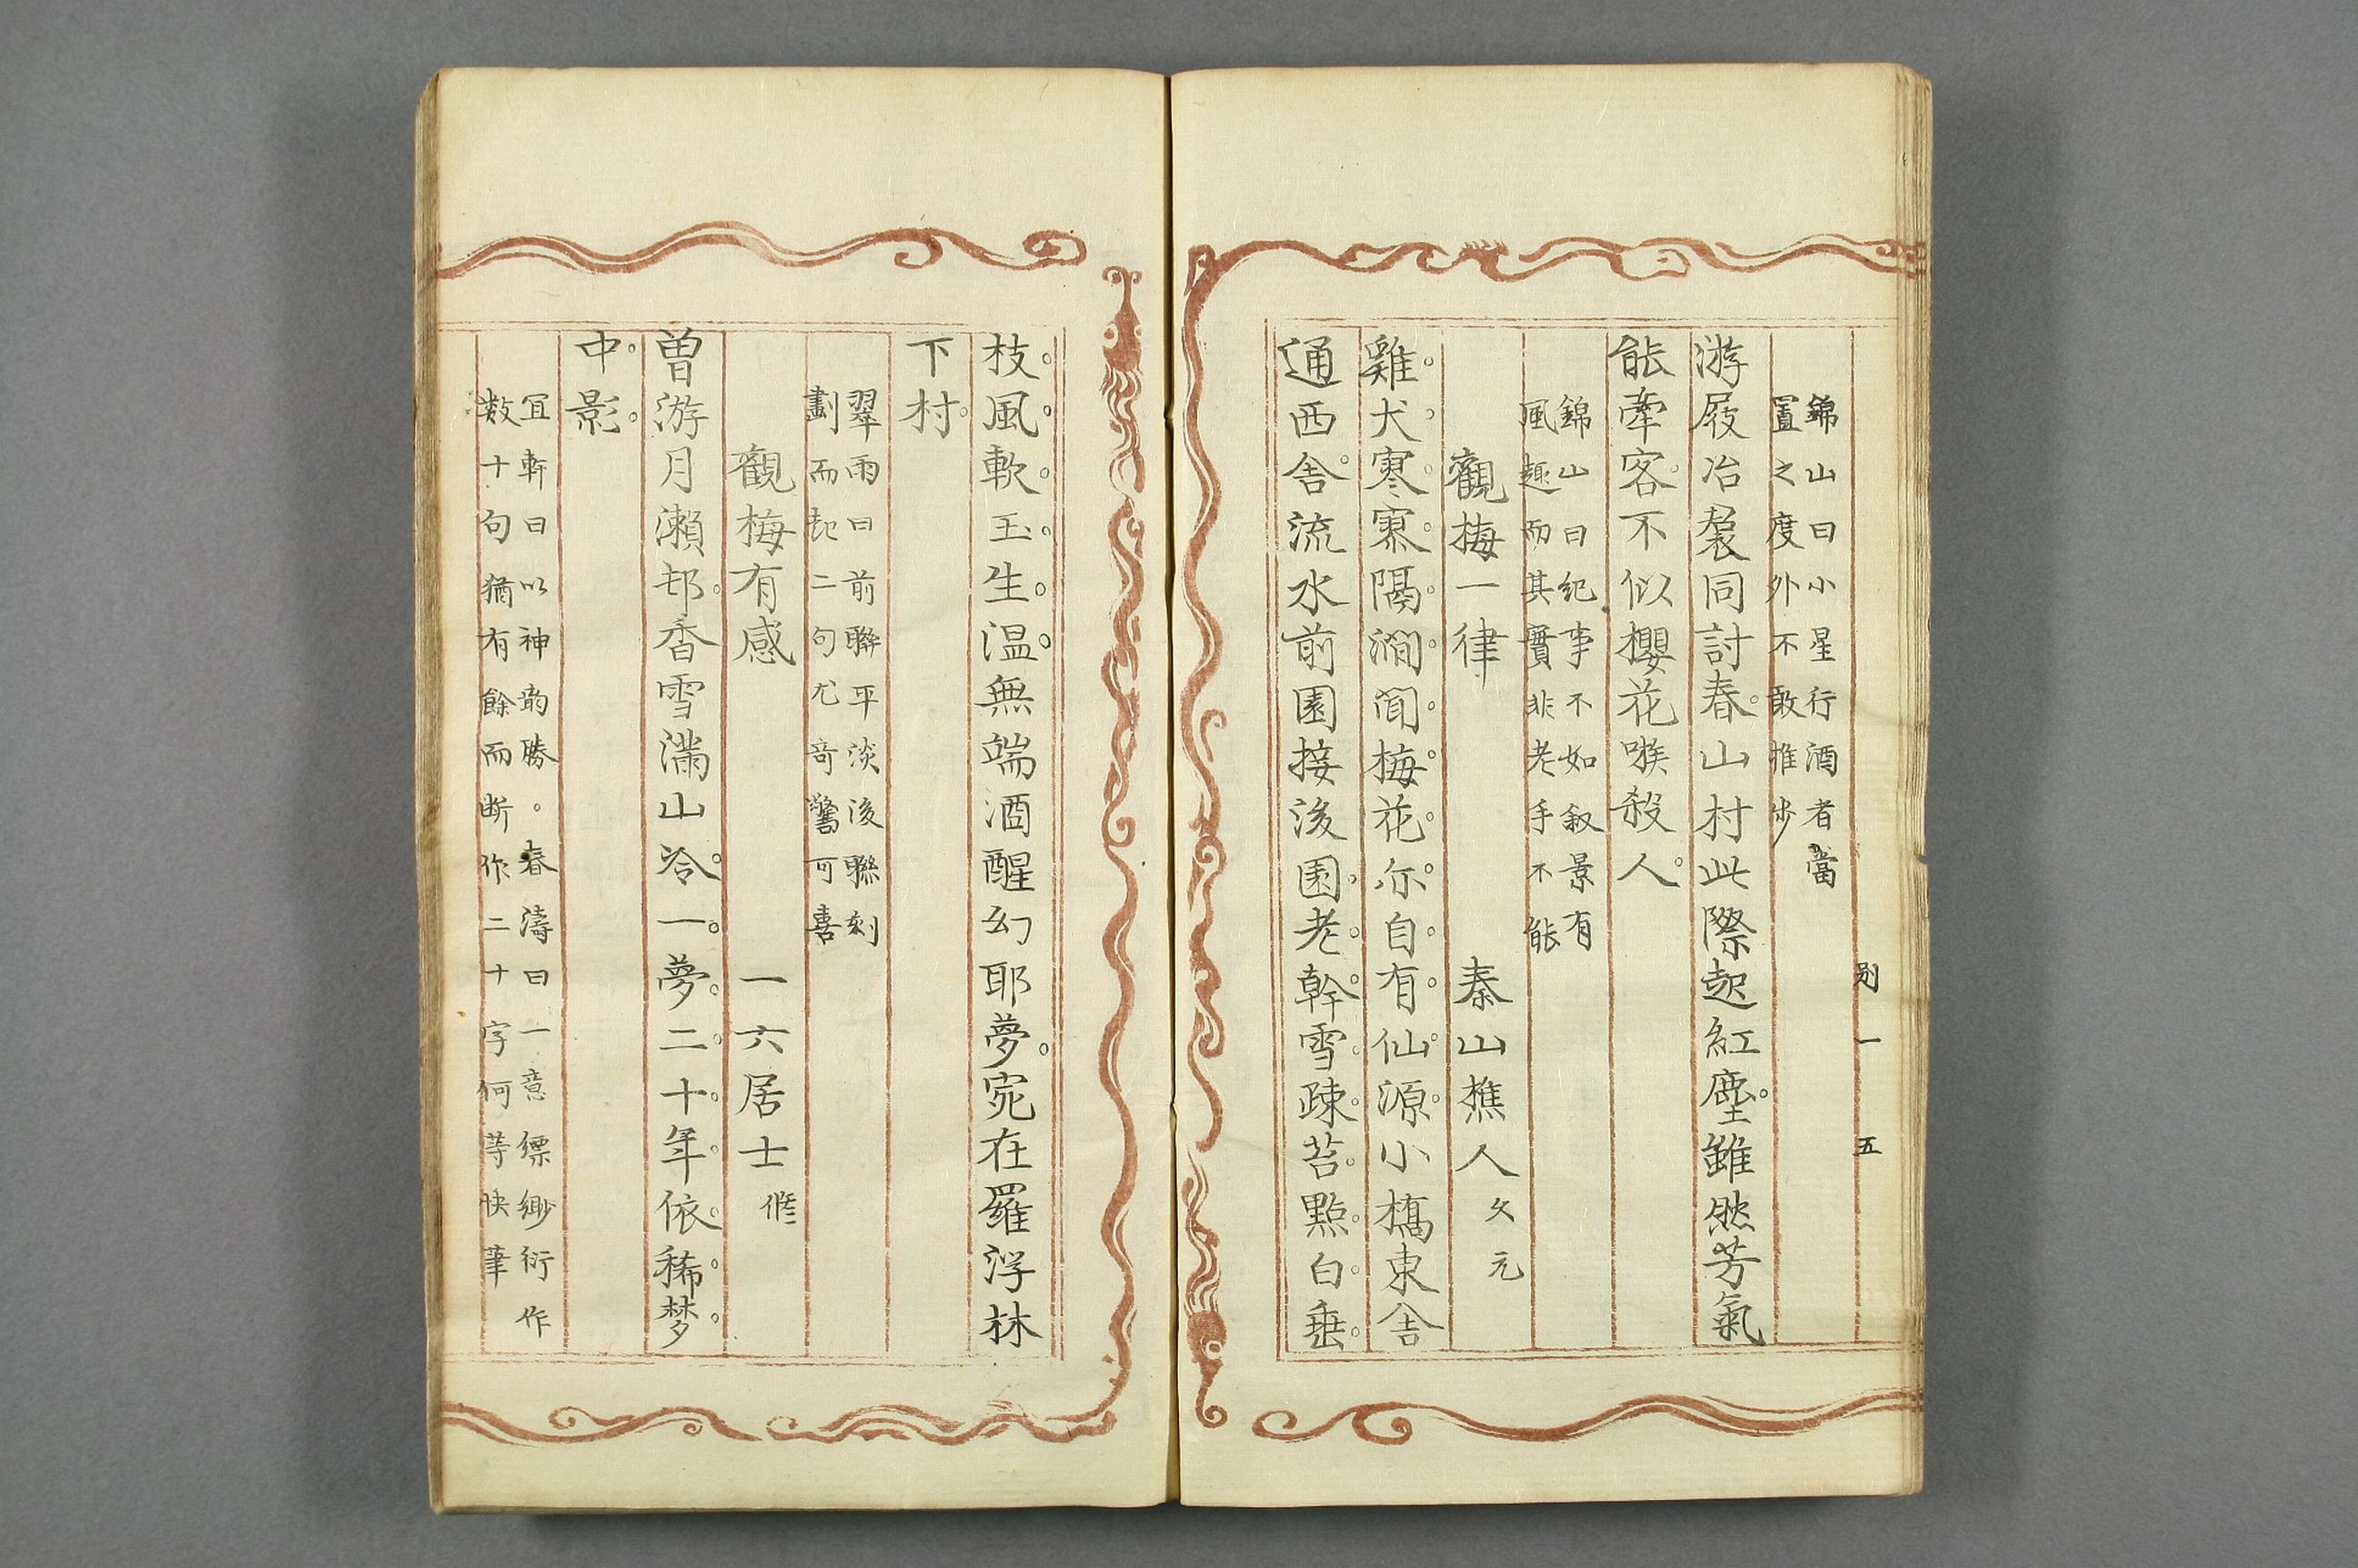 別一 五
錦山曰小星行酒者當
置之度外不敢推步
游屐冶袋同討春山村此際起紅塵雖然芳氣
能牽客不似櫻花嗾殺人
錦山曰紀事不如叙景有
風趣而其實非老手不能
觀梅一律 秦山樵人 文元
雞犬寒寒隔澗聞梅花尓自有仙源小橋東舎
通西舎流水前園接後園老幹雪疎苔點白垂
枝風軟玉生温無端酒醒幻耶夢宛在羅浮林
下村
翠雨曰前聯平淡後聯刻
劃而起二句尤奇驚可喜
觀梅有感 一六居士 修
曽游月瀬邨香雪滿山冷一夢二十年依稀梦
中影
冝軒曰以神韵勝。春濤曰一意縹緲衍作
数十句猶有餘而断作二十字何等快筆